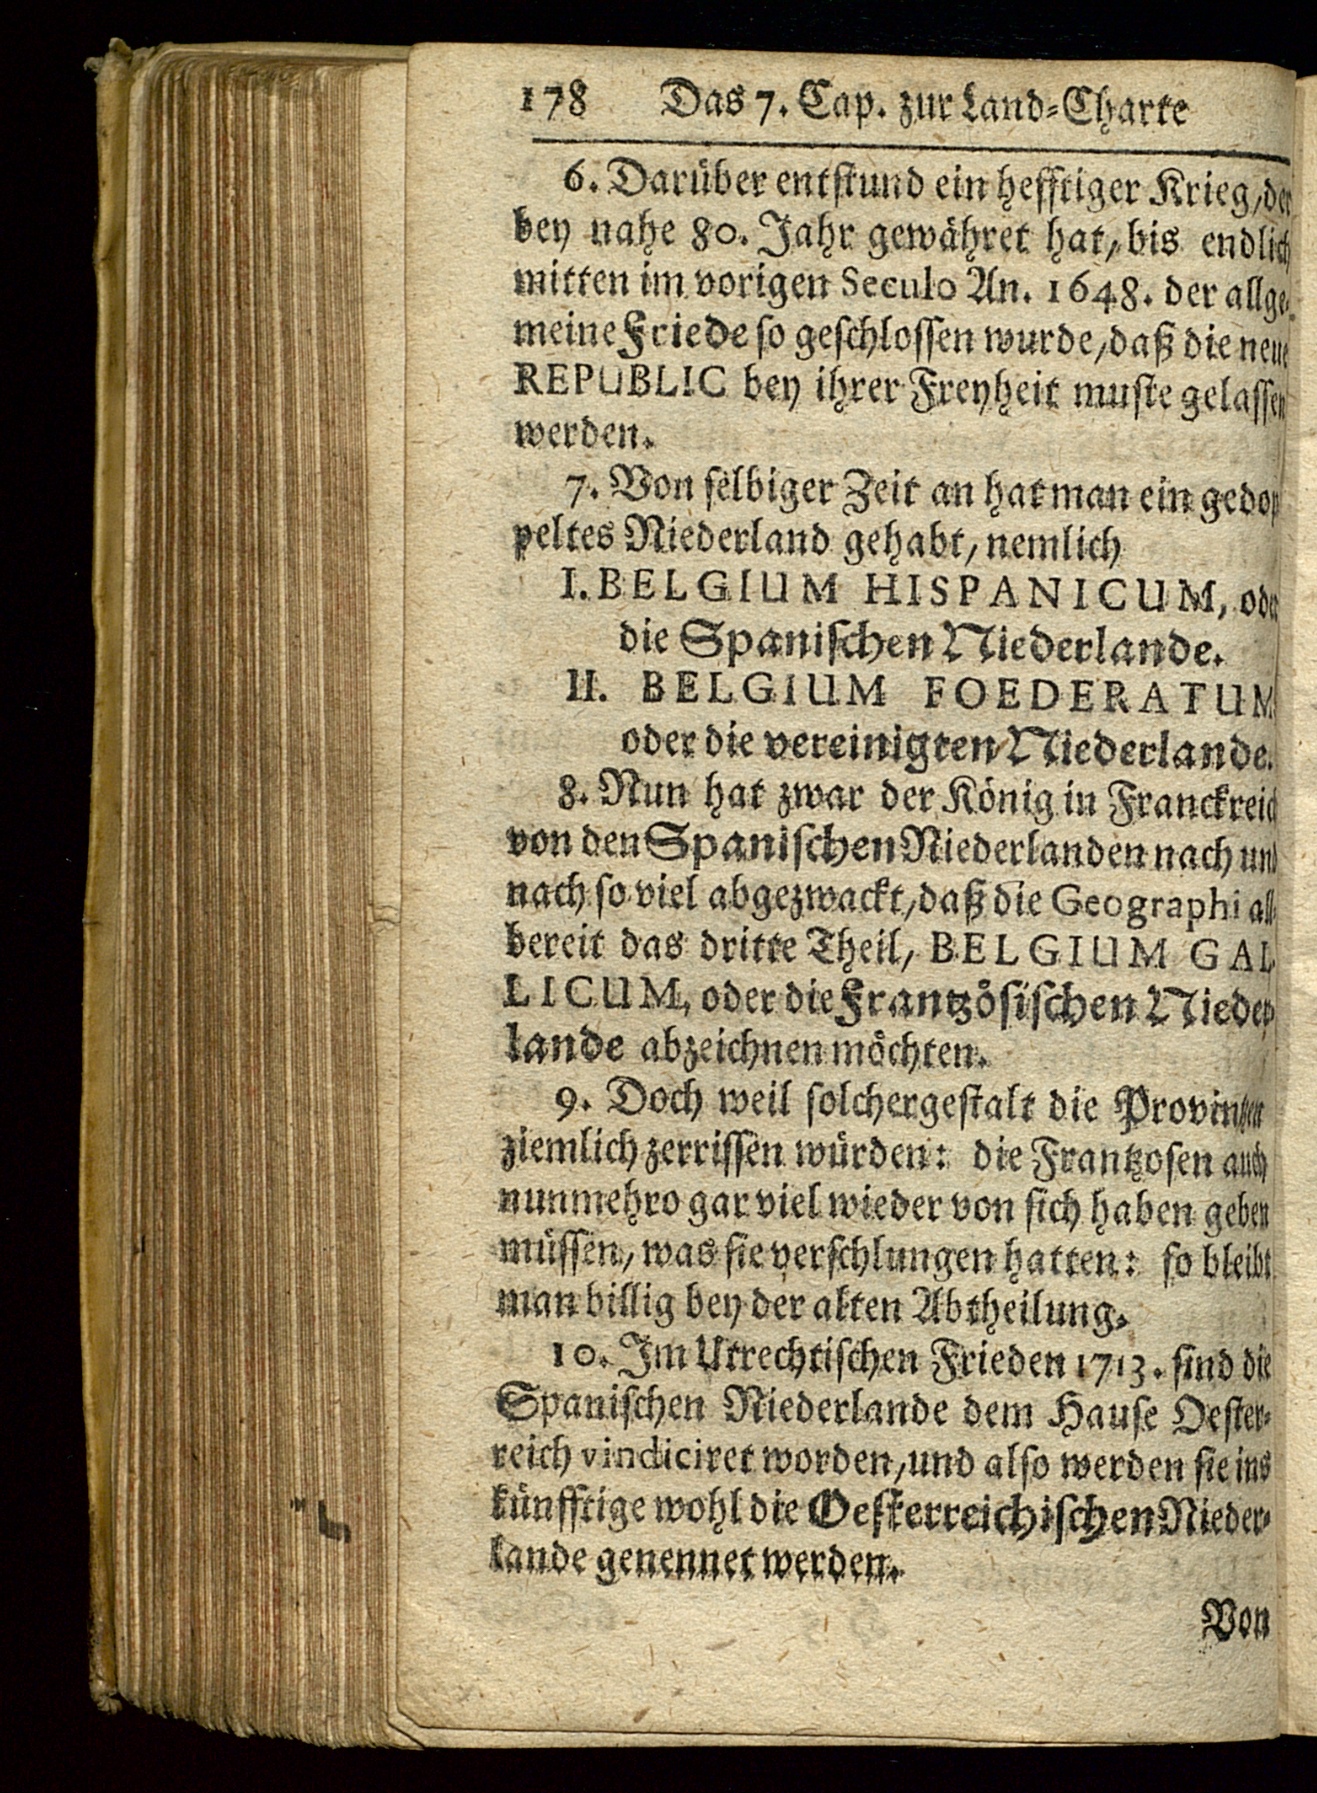 178 Das 7. Cap. zur Land-Charte
6. Darüber entstund ein hefftiger Krieg, der
bey nahe 80. Jahr gewähret hat, bis endlich
mitten im vorigen Seculo An. 1648. der allge-
meine Friede so geschlossen wurde, daß die neue
REPUBLIC bey ihrer Freyheit muste gelassen
werden.
7. Von selbiger Zeit an hat man ein gedop
peltes Niederland gehabt, nemlich
I. BELGIUM HISPANICUM, oder
die Spanischen Niederlande.
II. BELGIUM FOEDERATUM
oder die vereinigten Niederlande.
8. Nun hat zwar der König in Franckreich
von den Spanischen Niederlanden nach und
nach so viel abgezwackt, daß die Geographi all-
bereit das dritte Theil, BELGIUM GAL-
LICUM, oder die Frantzösischen Nieder-
lande abzeichnen möchten.
9. Doch weil solchergestalt die Provintzen
ziemlich zerrissen würden: die Frantzosen auch
nunmehro gar viel wieder von sich haben geben
müssen, was sie verschlungen hatten: so bleibt
man billig bey der alten Abtheilung.
10. Im Utrechtischen Frieden 1713. sind die
Spanischen Niederlande dem Hause Oester-
reich vindiciret worden, und also werden sie ins
künfftige wohl die Oesterreichischen Nieder-
lande genennet werden.
Von